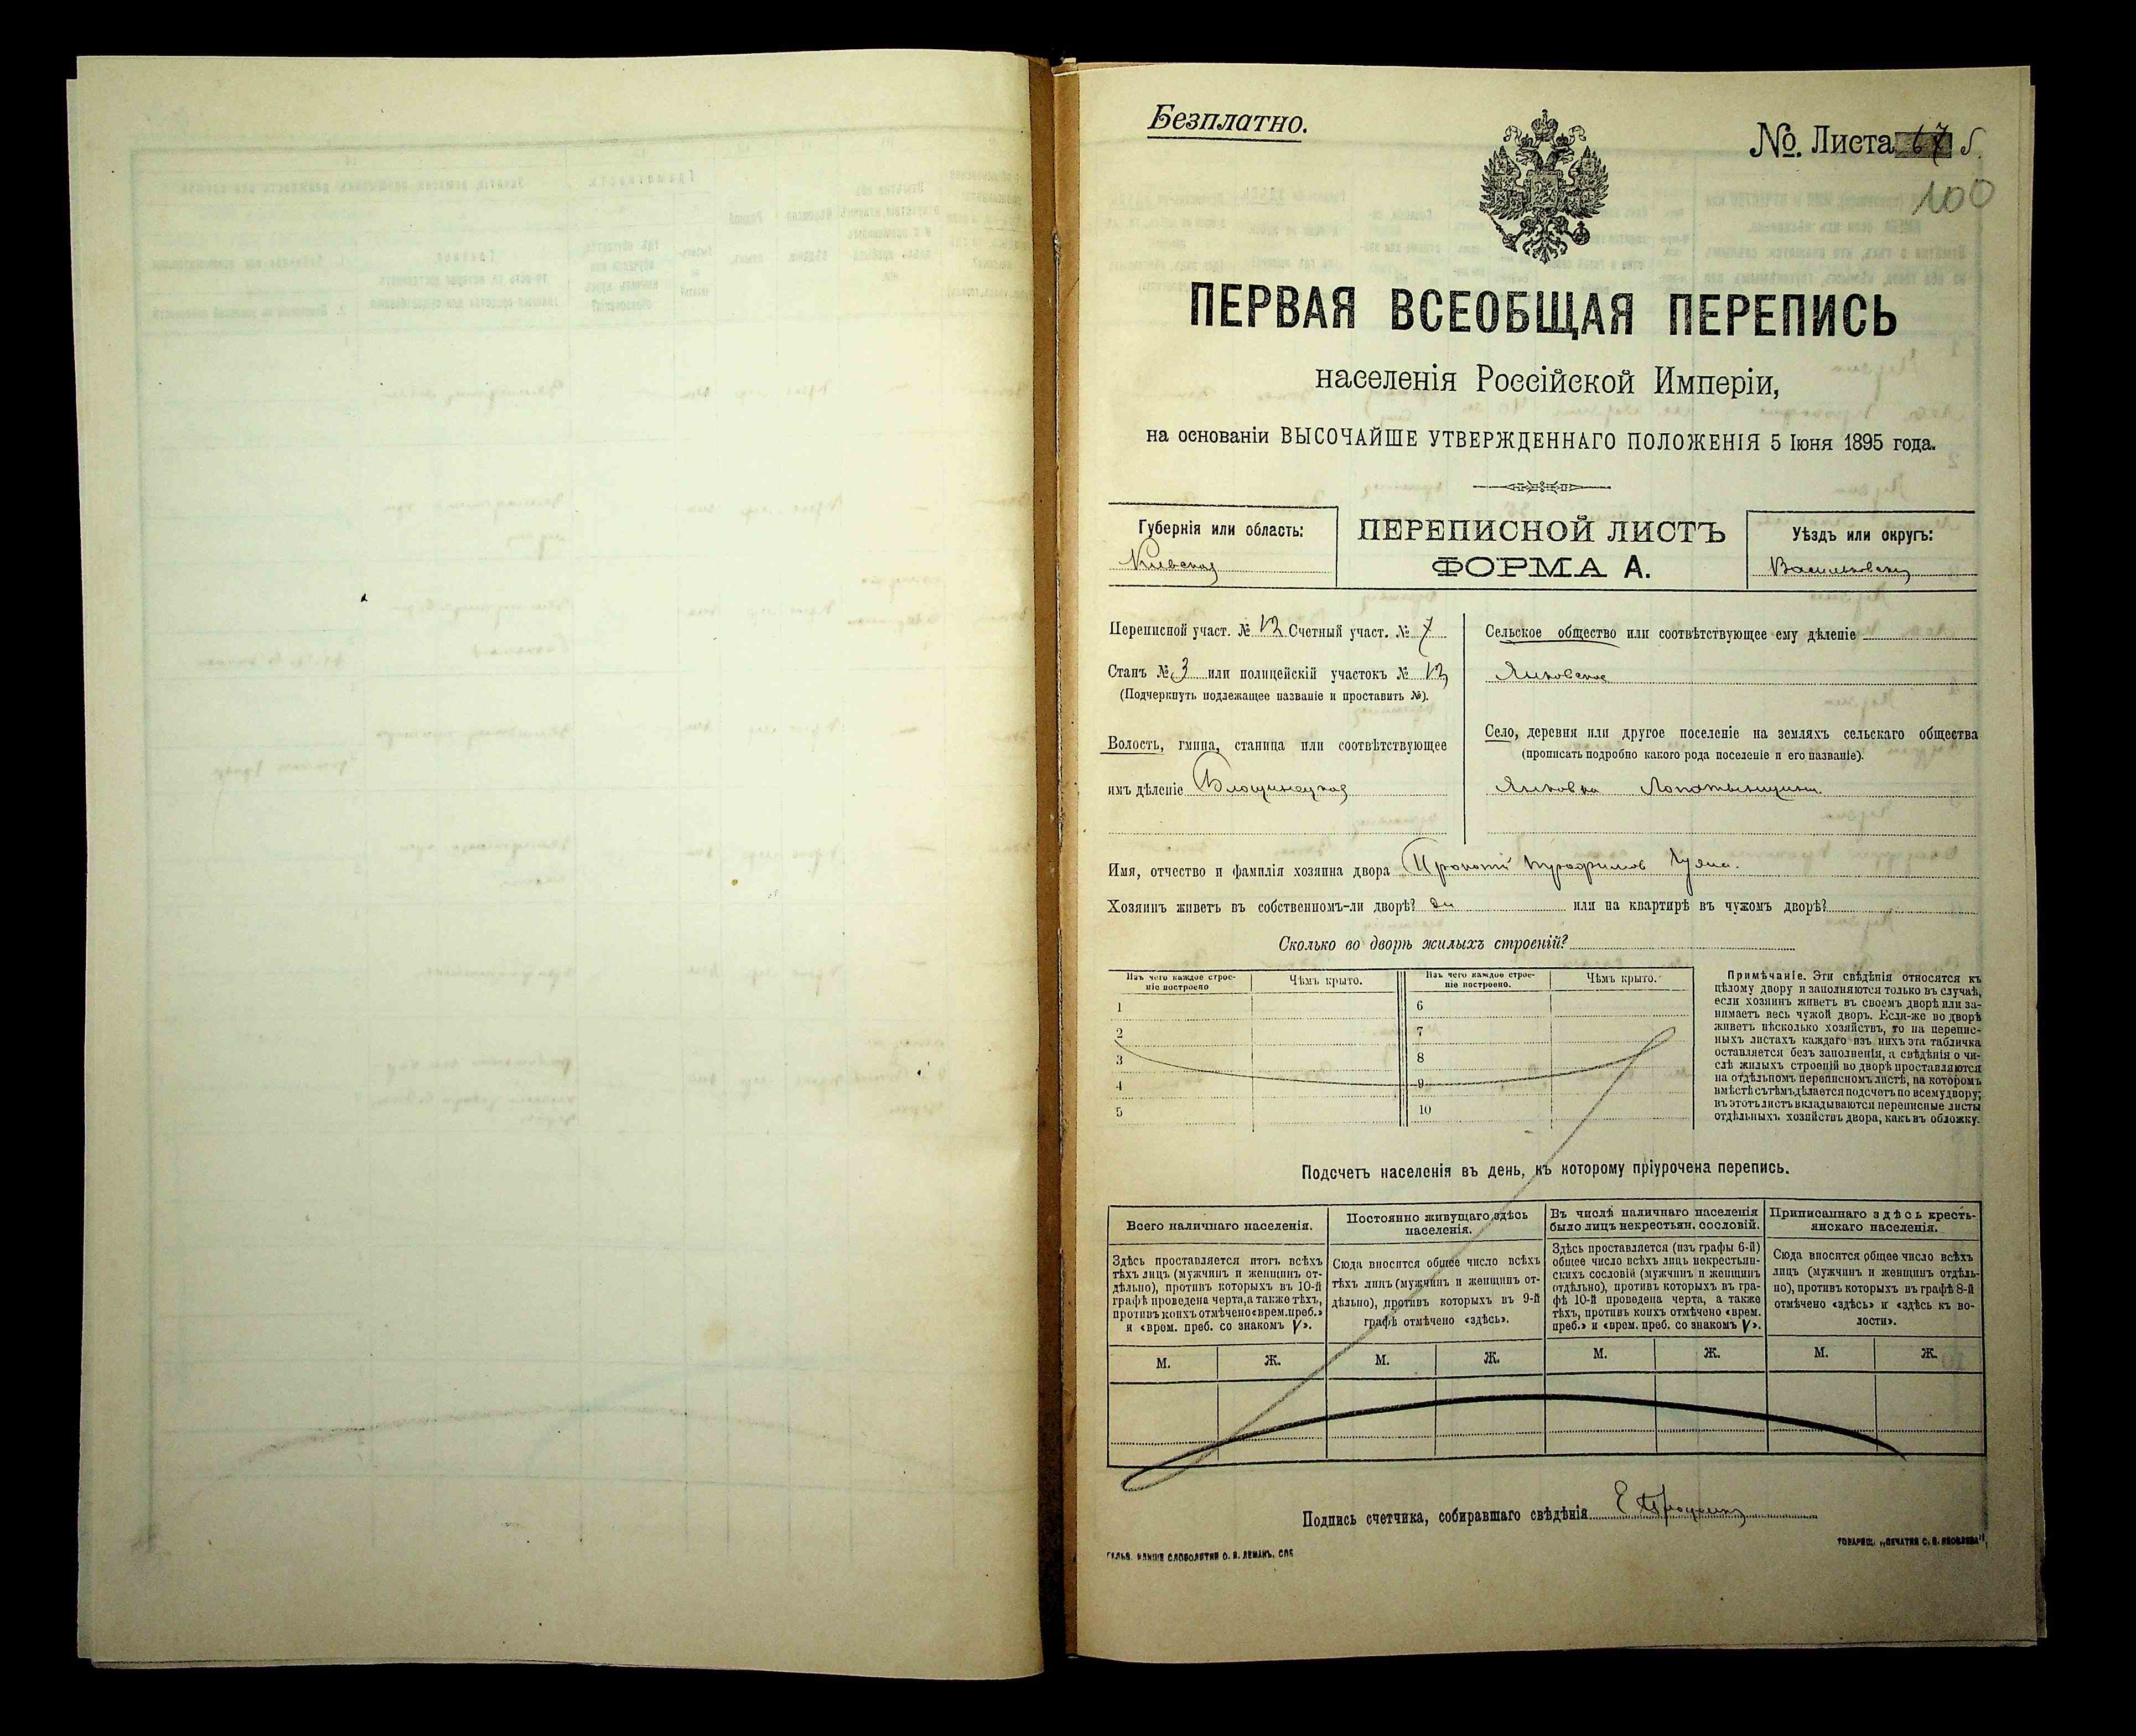 Безплатно.
№ Листа 67 б.
100
ПЕРВАЯ ВСЕОБЩАЯ ПЕРЕПИСЬ
населенія Россійской Имперіи,
на основаніи ВЫСОЧАЙШЕ УТВЕРЖДЕННАГО ПОЛОЖЕНІЯ 5 Іюня 1895 года.
Губернія или область:
Кіевская
ПЕРЕПИСНОЙ ЛИСТЪ
ФОРМА А.
Уѣздъ или округъ:
Васильковскій
Переписной участ. № 12 Счетный участ. № 7
Станъ № 3 или полицейскій участокъ № 12
(Подчеркнуть подлежащее названіе и проставить №).
Волость, гмина, станица или соотвѣтствующее
имъ дѣленіе Блощинецкая
Сельское общество или соотвѣтствующее ему дѣленіе
Янковское
Село, деревня или другое поселеніе на земляхъ сельскаго общества
(прописать подробно какого рода поселеніе и его названіе).
Янковка Лопатынщина
Имя, отчество и фамилія хозяина двора Прокопій Трофимов
Хозяинъ живетъ въ собственномъ-ли дворѣ? да или на квартирѣ въ чужомъ дворѣ?
Сколько во дворѣ жилыхъ строеній?
Изъ чего каждое строе-
ніе построено
Чѣмъ крыто.
Изъ чего каждое строе-
ніе построено.
Чѣмъ крыто.
1
2
3
4
5
6
7
8
9
10
Примѣчаніе. Эти свѣдѣнія относятся къ
цѣлому двору и заполняются только въ случаѣ,
если хозяинъ живетъ въ своемъ дворѣ или за-
нимаетъ весь чужой дворъ. Если-же во дворѣ
живетъ нѣсколько хозяйствъ, то на перепис-
ныхъ листахъ каждаго изъ нихъ эта табличка
оставляется безъ заполненія, а свѣдѣнія о чи-
слѣ жилыхъ строеній во дворѣ проставляются
на отдѣльномъ переписномъ листѣ, на которомъ
вмѣстѣ съ тѣмъ дѣлается подсчетъ по всему двору;
въ этотъ листъ вкладываются переписные листы
отдѣльныхъ хозяйствъ двора, какъ въ обложку.
Подсчетъ населенія въ день, къ которому пріурочена перепись.
Всего наличнаго населенія.
Здѣсь проставляется итогъ всѣхъ
тѣхъ лицъ (мужчинъ и женщинъ от-
дѣльно), противъ которыхъ въ 10-й
графѣ проведена черта, а также тѣхъ,
противъ коихъ отмѣчено «врем. преб.»
и «врем. преб. со знакомъ V».
Постоянно живущаго здѣсь
населенія.
Сюда вносится общее число всѣхъ
тѣхъ лицъ (мужчинъ и женщинъ от-
дѣльно), противъ которыхъ въ 9-й
графѣ отмѣчено «здѣсь».
Въ числѣ наличнаго населенія
было лицъ некрестьян. сословій.
Здѣсь проставляется (изъ графы 6-й)
общее число всѣхъ лицъ некрестьян-
скихъ сословій (мужчинъ и женщинъ
отдѣльно), противъ которыхъ въ гра-
фѣ 10-й проведена черта, а также
тѣхъ, противъ коихъ отмѣчено «врем.
преб.» и «врем. преб. со знакомъ V».
Приписаннаго здѣсь кресть-
янскаго населенія.
Сюда вносится общее число всѣхъ
лицъ (мужчинъ и женщинъ отдѣль-
но), противъ которыхъ въ графѣ 8-й
отмѣчено «здѣсь» и «здѣсь къ во-
лости».
М. Ж. М. Ж. М. Ж. М. Ж.
Подпись счетчика, собиравшаго свѣдѣнія
ТОВАРИЩ. „ПЕЧАТНЯ С. П. ЯКОВЛЕВА"